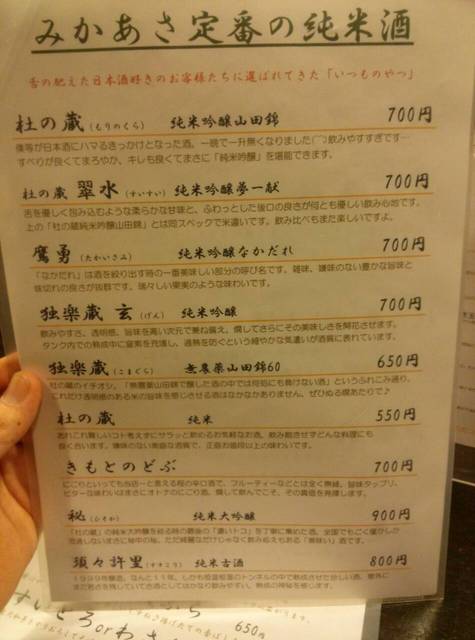 みかあさ定番の純米酒
舌の肥えた日本酒好きのお客様たちに選ばれてきた「いつものやつ」
杜の蔵(もりのくら) 純米吟醸山田錦 700円
僕等が日本酒にハマるきっかけとなった酒。一晩で一升無くなりました(^^)飲みやすすぎです…
すべりが良くてまろやか、キレも良くてまさに「純米吟醸」を堪能できます。
杜の蔵 翠水(すいすい) 純米吟醸夢一献 700円
舌を優しく包み込むような柔らかな甘味と、ふわっとした後口の良さが何とも優しい飲み心地です。
上の「杜の蔵純米吟醸山田錦」とは同スペックで米違いです。飲み比べもまた楽しいですよ。
鷹勇(たかいさみ) 純米吟醸なかだれ 700円
「なかだれ」は酒を絞り出す時の一番美味しい部分の呼び名です。雑味、嫌味のない豊かな旨味と
味切れの良さが抜群です。瑞々しい果実のような味わいです。
独楽蔵 玄(げん) 純米吟醸 700円
飲みやすさ、透明感、旨味を高い次元で兼ね備え、燗してさらにその美味しさを開花させます。
タンク内での熟成中に窒素を充填し、過熟を防ぐという細やかな気遣いが酒質に表れています。
独楽蔵(こまぐら) 無農薬山田錦60 650円
杜の蔵のイチオシ。「無農薬山田錦で醸した酒の中では何処にも負けない酒」というふれこみ通り、
これだけ透明感のある米の旨味を感じさせる酒はなかなかありません、ぜひぬる燗あたりで♪
杜の蔵 純米 550円
あれこれ難しいコト考えずにサラッと飲めるお気軽なお酒。飲み飽きせずどんな料理にも
良く合います。嫌味のない素直な酒質で、正直お値段以上の味わいです。
きもとのどぶ 700円
にごりといっても当店一と言える程の辛口酒で、フルーティーなどとは全く無縁。旨味タップリ、
ビターな味わいはまさにオトナのにごり酒。燗して飲んでこそ、その真価を発揮します。
秘(ひそか) 純米大吟醸 900円
「杜の蔵」の純米大吟醸を絞る時の最後の「濃いトコ」を丁寧に集めた酒。全国でもごく僅かしか
流通しないまさに秘中の秘。ただ綺麗なだけじゃなく飲み応えもある「美味い」酒です。
須々許里(すすこり) 純米古酒 800円
1999年醸造、なんと11年。しかも恒温恒湿のトンネルの中で熟成させた珍しい酒。意外に
まだ若さを残していて古酒としてはかなり飲みやすい。熟成の神秘を感じます。
650円